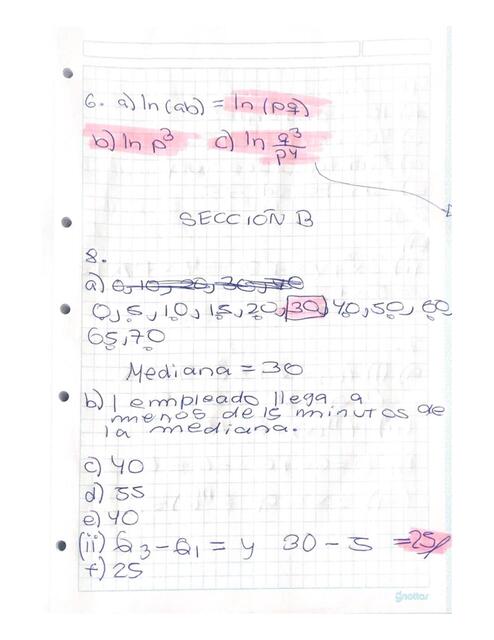 6. a) ln(ab) = ln(pq)
b) ln p³ c) ln q³/p⁴
SECCIÓN B
8.
a) 0, 10, 20, 30, 70
0, 5, 10, 15, 20, 30, 40, 50, 60,
65, 70
Mediana = 30
b) 1 empleado llega a
menos de 15 minutos de
la mediana.
c) 40
d) 55
e) 40
(ii) Q₃ - Q₁ = y 30 - 5 = 25
f) 25
gnottas